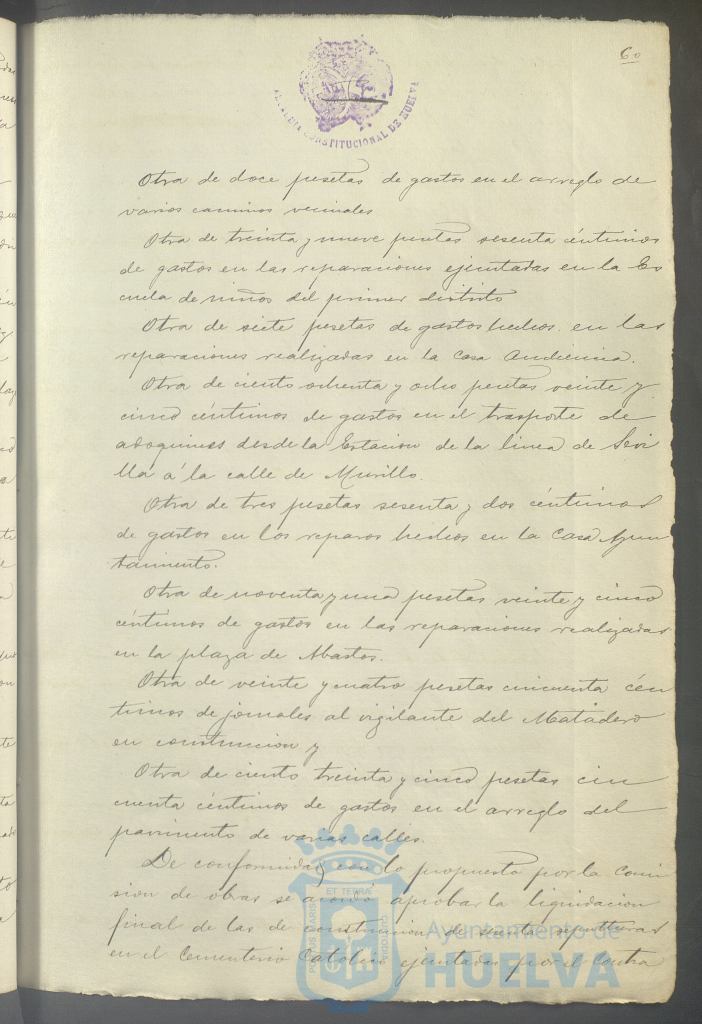 60
ALCALDIA CONSTITUCIONAL DE HUELVA
Otra de doce pesetas de gastos en el arreglo de
varios caminos vecinales
Otra de treinta y nueve pesetas sesenta céntimos
de gastos en las reparaciones ejecutadas en la Es
cuela de niños del primer distrito
Otra de siete pesetas de gastos hechos en las
reparaciones realizadas en la Casa Audiencia.
Otra de ciento ochenta y ocho pesetas veinte y
cinco céntimos de gastos en el trasporte de
adoquines desde la Estacion de la linea de Sevi
lla á la calle de Murillo.
Otra de tres pesetas sesenta y dos céntimos
de gastos en los reparos hechos en la Casa Ayun
tamiento.
Otra de noventa y una pesetas veinte y cinco
céntimos de gastos en las reparaciones realizadas
en la plaza de Abastos.
Otra de veinte y cuatro pesetas cincuenta cén
timos de jornales al vigilante del Matadero
en construccion y
Otra de ciento treinta y cinco pesetas cin
cuenta céntimos de gastos en el arreglo del
pavimento de varias calles.
De conformidad con lo propuesto por la Comi
sion de obras se acordó aprobar la liquidacion
final de las de construccion de sepulturas
en el Cementerio Católico ejecutadas por el Contra
PORTUS MARIS ET TERRÆ CUSTODIA
Ayuntamiento de
HUELVA